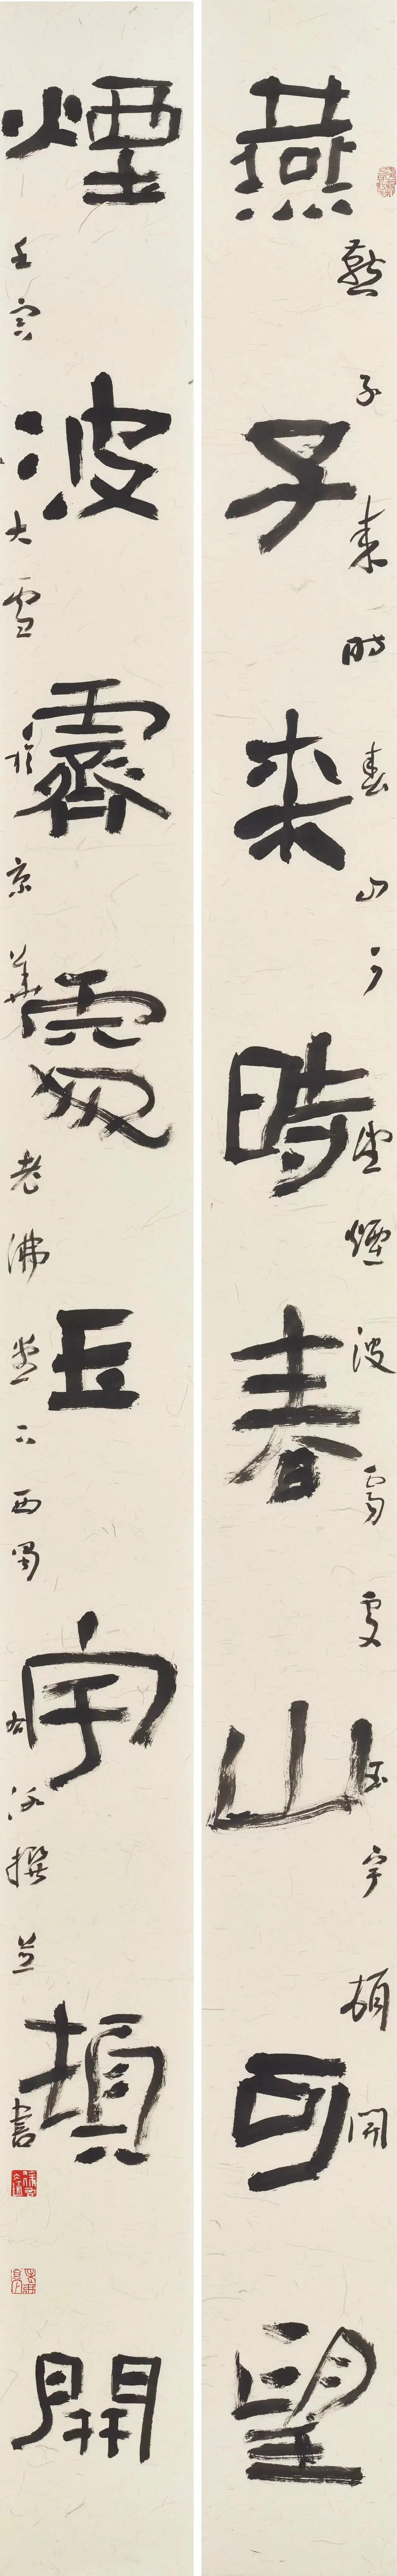 燕子来時春山可望
燕子来時春山可望煙波霽處玉宇頓開
煙波霽處玉宇頓開
壬寅大雪於京華老佛堂下西蜀撰並書